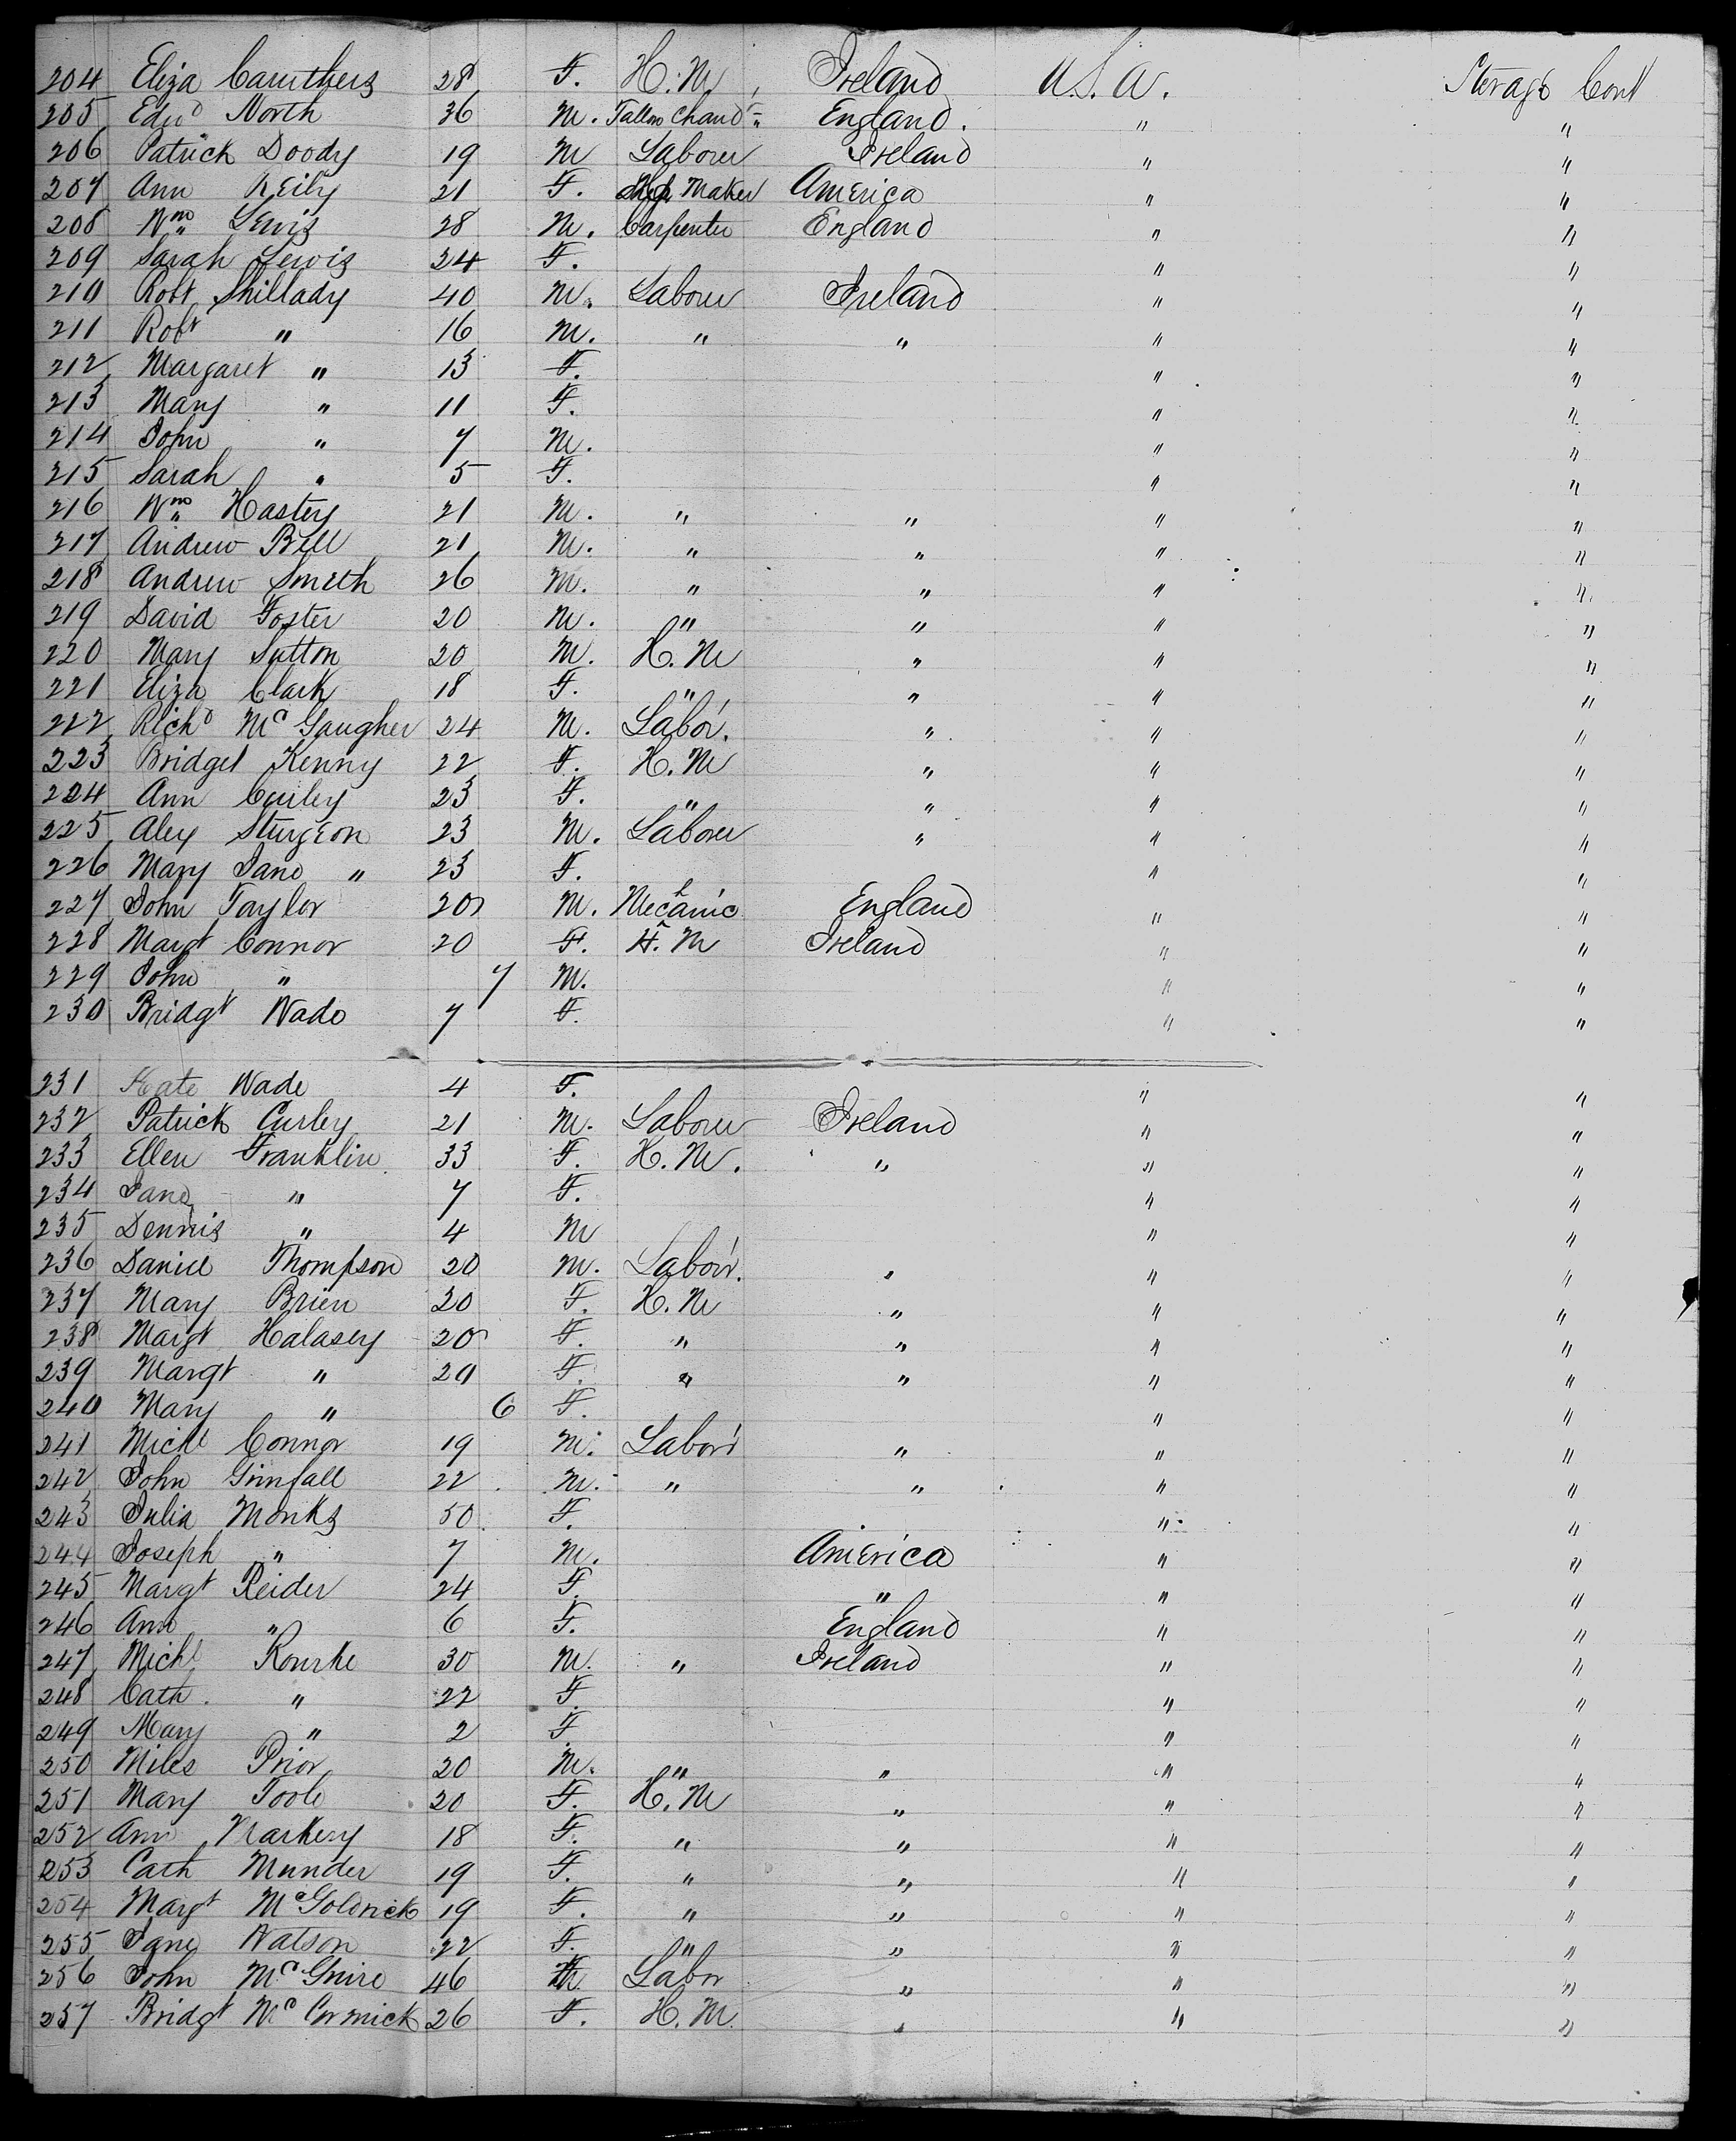 204 Eliza Caruthers 28 F. H. M Ireland U.S.A. Sterage Cont
205 Edwd North 36 M. Tallow Chandr England. " "
206 Patrick Doody 19 M Laborer Ireland " "
207 Ann Reily 21 F. Maker America " "
208 Wm Lewis 28 M. Carpenter England " "
209 Sarah Lewis 24 F. " "
210 Robt Shillady 40 M. Laborer Ireland " "
211 Robt " 16 M. " " " "
212 Margaret " 13 F. " "
213 Mary " 11 F. " "
214 John " 7 M. " "
215 Sarah " 5 F. " "
216 Wm Hastey 21 M. " " " "
217 Andrew Bell 21 M. " " " "
218 Andrew Smith 26 M. " " " "
219 David Foster 20 M. " " " "
220 Mary Sutton 20 M. H. M " " "
221 Eliza Clark 18 F. " " " "
222 Richd Mc Gaugher 24 M. Labor. " " "
223 Bridget Kenny 22 F. H. M " " "
224 Ann Curley 23 F. " " " "
225 Alex Sturgeon 23 M. Laborer " " "
226 Mary Jane " 23 F. " "
227 John Taylor 20 M. Mechanic England " "
228 Margt Connor 20 F. H. M Ireland " "
229 John " 7 M. " "
230 Bridgt Wade 7 F. " "
231 Kate Wade 4 F. " "
232 Patrick Curley 21 M. Laborer Ireland " "
233 Ellen Franklin 33 F. H. M. " " "
234 Jane " 7 F. " "
235 Dennis " 4 M " "
236 Daniel Thompson 20 M. Labor. " " "
237 Mary Brien 20 F. H. M " " "
238 Margt Halasey 20 F. " " " "
239 Margt " 20 F. " " " "
240 Mary " 6 F. " "
241 Michl Connor 19 M. Labor " " "
242 John Grinfall 22 M. " " " "
243 Julia Monks 50 F. " "
244 Joseph " 7 M. America " "
245 Margt Reider 24 F. " " "
246 Ann " 6 F. England " "
247 Michl Rourke 30 M. " Ireland " "
248 Cath. " 22 F. " "
249 Mary " 2 F " "
250 Miles Prior 20 M. " " " "
251 Mary Toole 20 F. H. M " " "
252 Ann Markey 18 F. " " " "
253 Cath Munder 19 F. " " " "
254 Margt McGoldrick 19 F. " " " "
255 Jane Watson 22 F. " " " "
256 John Mc Guire 46 M. Labor " " "
257 Bridgt Mc Cormick 26 F. H. M. " " "